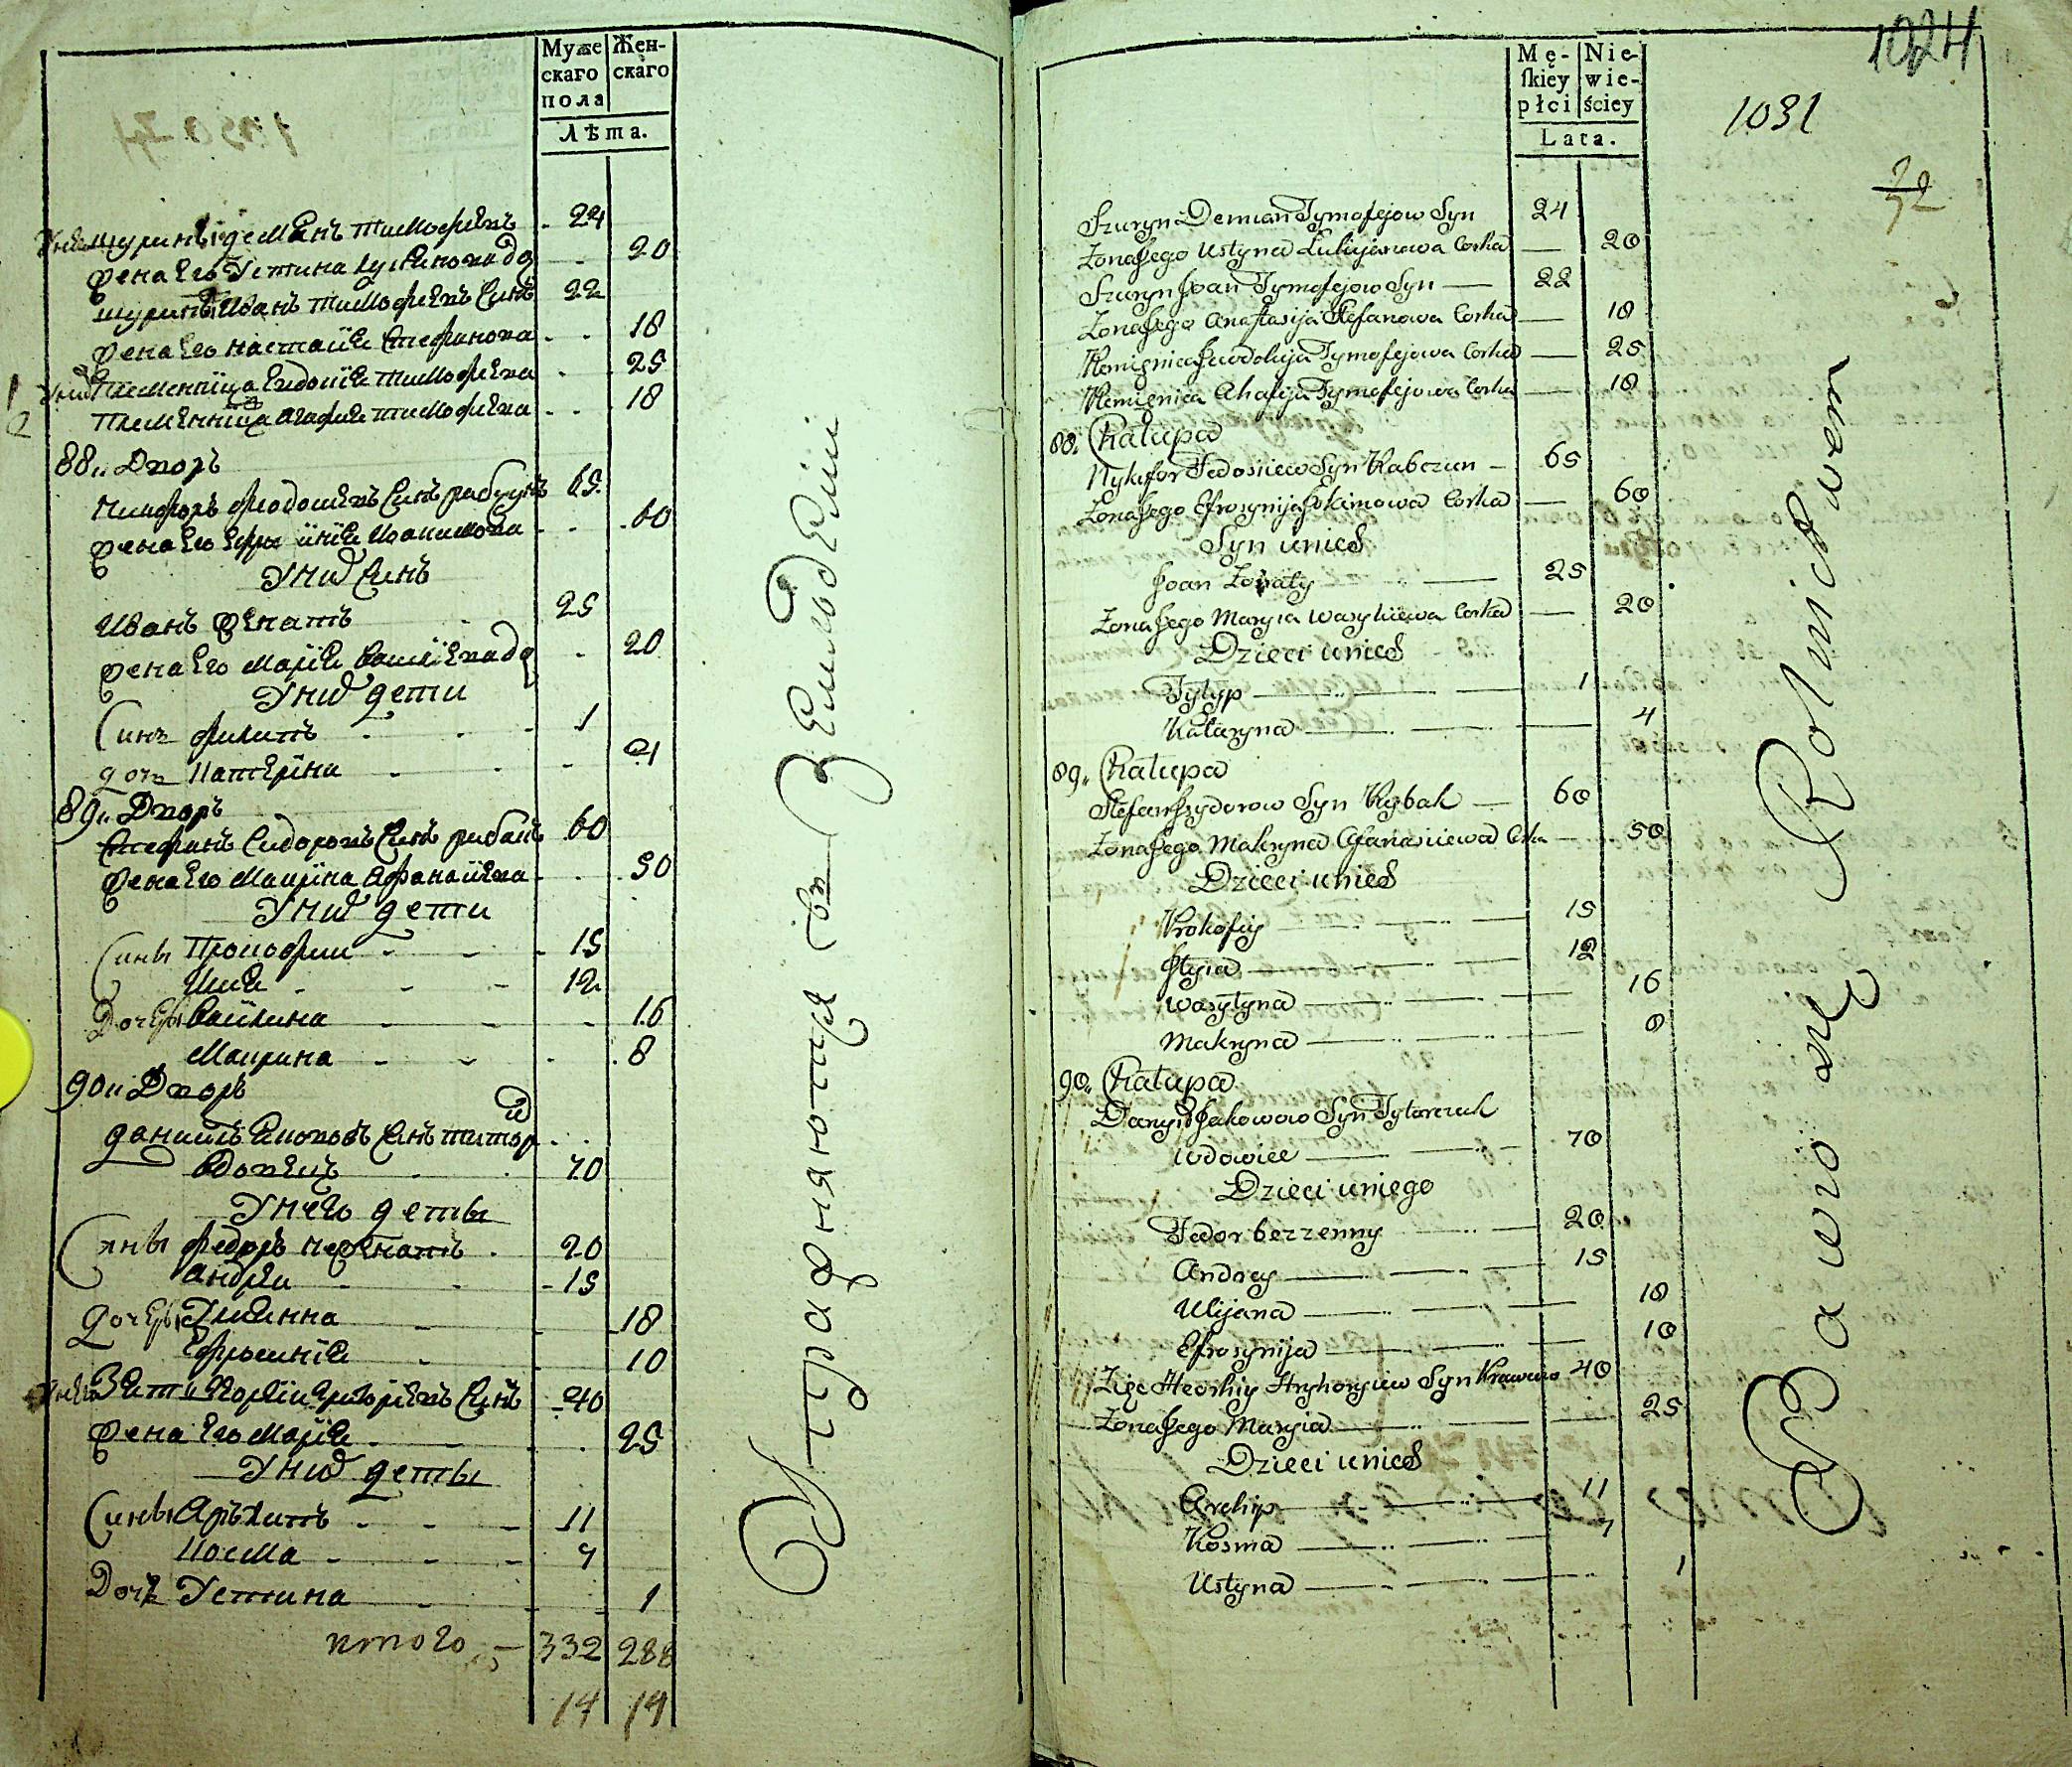 Муже Жен-
скаго скаго
пола
Лѣта.
шуринъ демянъ тимофѣевъ 24
жена его Устина лукянова до 20
шуринъ Иванъ тимофѣевъ синъ 22
жена его настасїя Стефанова 18
племенница Евдокїя тимофѣева 25
племенница агафия тимофѣева 18
88 Дворъ
никифоръ феодосиевъ синъ рабчунъ 65
жена его Ефросинїя Иоакимова 60
У них синъ
Иванъ женатъ 25
жена его Марїя василїева до 20
У них дети
Синъ филипъ 1
дочъ Катерїна 4
89 Дворъ
Стефанъ Сидоровъ синъ рибакъ 60
жена его Макрїна Афанасїева 50
У них дети
Сины Прокофии 15
Илия 12
Дочеры Васїлина 16
Макрина 8
90 Дворъ
данило Яковов синъ титор
вдовецъ 70
У него деты
Сины федоръ неженатъ 20
андрей 15
дочеры Улиянна 18
Ефросинїя 10
Зять Георгїи григорїевъ синъ 40
жена его Марїя 25
У них деты
Сины Архипъ 11
Косма 7
Дочъ Устина 1
итого 332 288
14 19
Упражняютця въ Земледелїи
Mę- Nie-
skiey wie-
płci ściey
Lata.
1024
1031
Szuryn Demian Tymofejow Syn 24
Zona Jego Ustyna Łukijanowa Corka 20
Szuryn Joan Tymofejow Syn 22
Zona Jego Anastasija Stefanowa Corka 18
Plemięnica Jewdokija Tymofejowa Corka 25
Plemięnica Ahafija Tymofejowa Corka 18
88. Chałupa
Nykifor Fedosiiew Syn Rabczun 65
Zona Jego Efrosynija Jokimowa Corka 60
Syn unich
Joan Zonaty 25
Zona Jego Maryia Wasyliiewa Corka 20
Dzieci unich
Fylyp 1
Kataryna 4
89. Chałupa
Stefan Jzydorow Syn Rybak 60
Zona Jego Makryna Afanasiiewa Corka 50
Dzieci unich
Prokofiy 15
Jlyia 12
Wasylyna 16
Makryna 8
90. Chałupa
Danyło Jakowow Syn Tytarczuk
wdowiec 70
Dzieci uniego
Fedor bezzenny 20
Andrey 15
Ulijana 18
Efrosynija 10
Zięc Heorhiy Hryhoryiew Syn Krawiec 40
Zona Jego Maryia 25
Dzieci unich
Archip 11
Kosma 7
Ustyna 1
Bawio się Rolnictwem